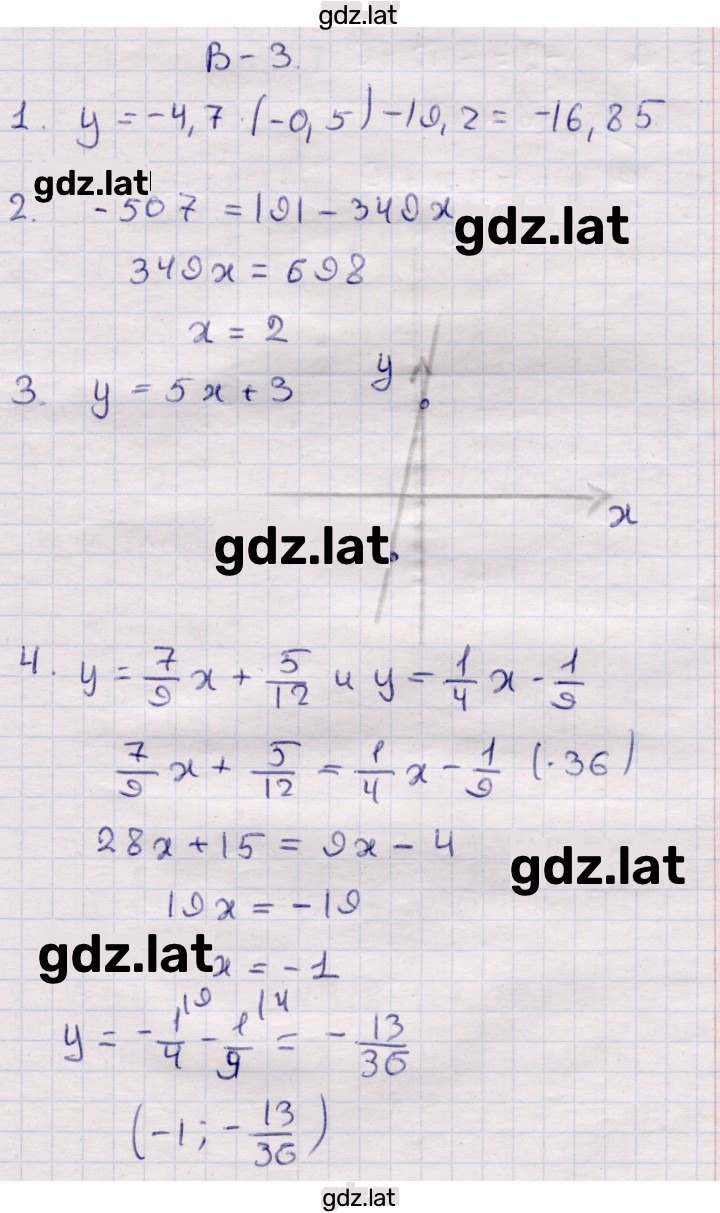 gdz.lat
В-3.
1. y = -4,7 · (-0,5) - 19,2 = -16,85
gdz.lat
2. -507 = 191 - 349x
gdz.lat
349x = 698
x = 2
3. y = 5x + 3
y
x
gdz.lat
4. y = 7/9 x + 5/12 и y = 1/4 x - 1/9
7/9 x + 5/12 = 1/4 x - 1/9 (·36)
28x + 15 = 9x - 4
gdz.lat
19x = -19
gdz.lat
x = -1
y = -1/4 \9 - 1/9 \4 = -13/36
(-1; -13/36)
gdz.lat